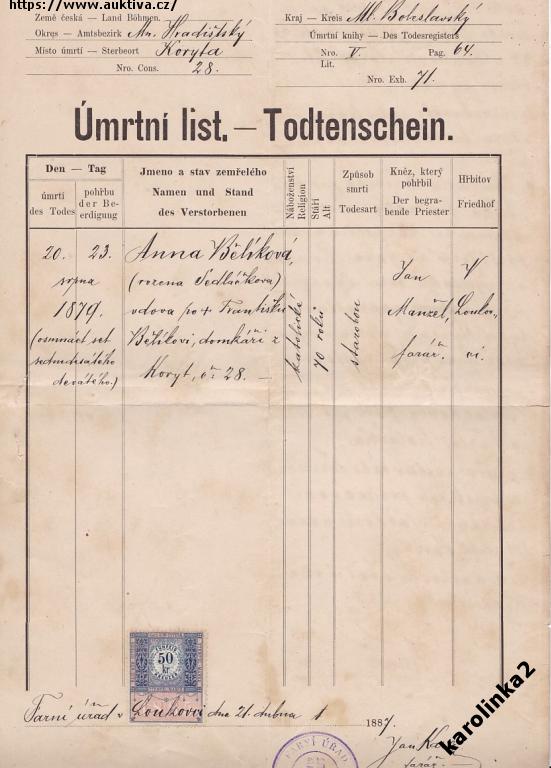 https://www.auktiva.cz/
Země česká — Land Böhmen.
Kraj — Kreis Ml. Boleslavský
Okres — Amtsbezirk Mn. Hradištský
Úmrtní knihy — Des Todesregisters
Místo úmrtí — Sterbeort Koryta
Nro. V. Pag. 64.
Nro. Cons. 28.
Lit.
Nro. Exb. 71.
Úmrtní list. — Todtenschein.
Den — Tag
úmrtí
des Todes
pohřbu
der Be-
erdigung
Jmeno a stav zemřelého
Namen und Stand
des Verstorbenen
Náboženství
Religion
Stáří
Alt
Způsob
smrti
Todesart
Kněz, který
pohřbil
Der begra-
bende Priester
Hřbitov
Friedhof
20. 23.
srpna
1879.
(osmnáct set
sedmdesátého
devátého.)
Anna Bělíková,
(rozena Sedláčkova)
vdova po + Františku
Bělíkovi, domkáři z
Koryt, čís. 28. —
katolické
70 roků
starobou
Jan
Manžel,
farář.
V
Loukov-
ci.
50
kr
Farní úřad v Loukovci dne 21. dubna 1887.
FARNÍ ÚŘAD
Jan
farář.
karolinka2